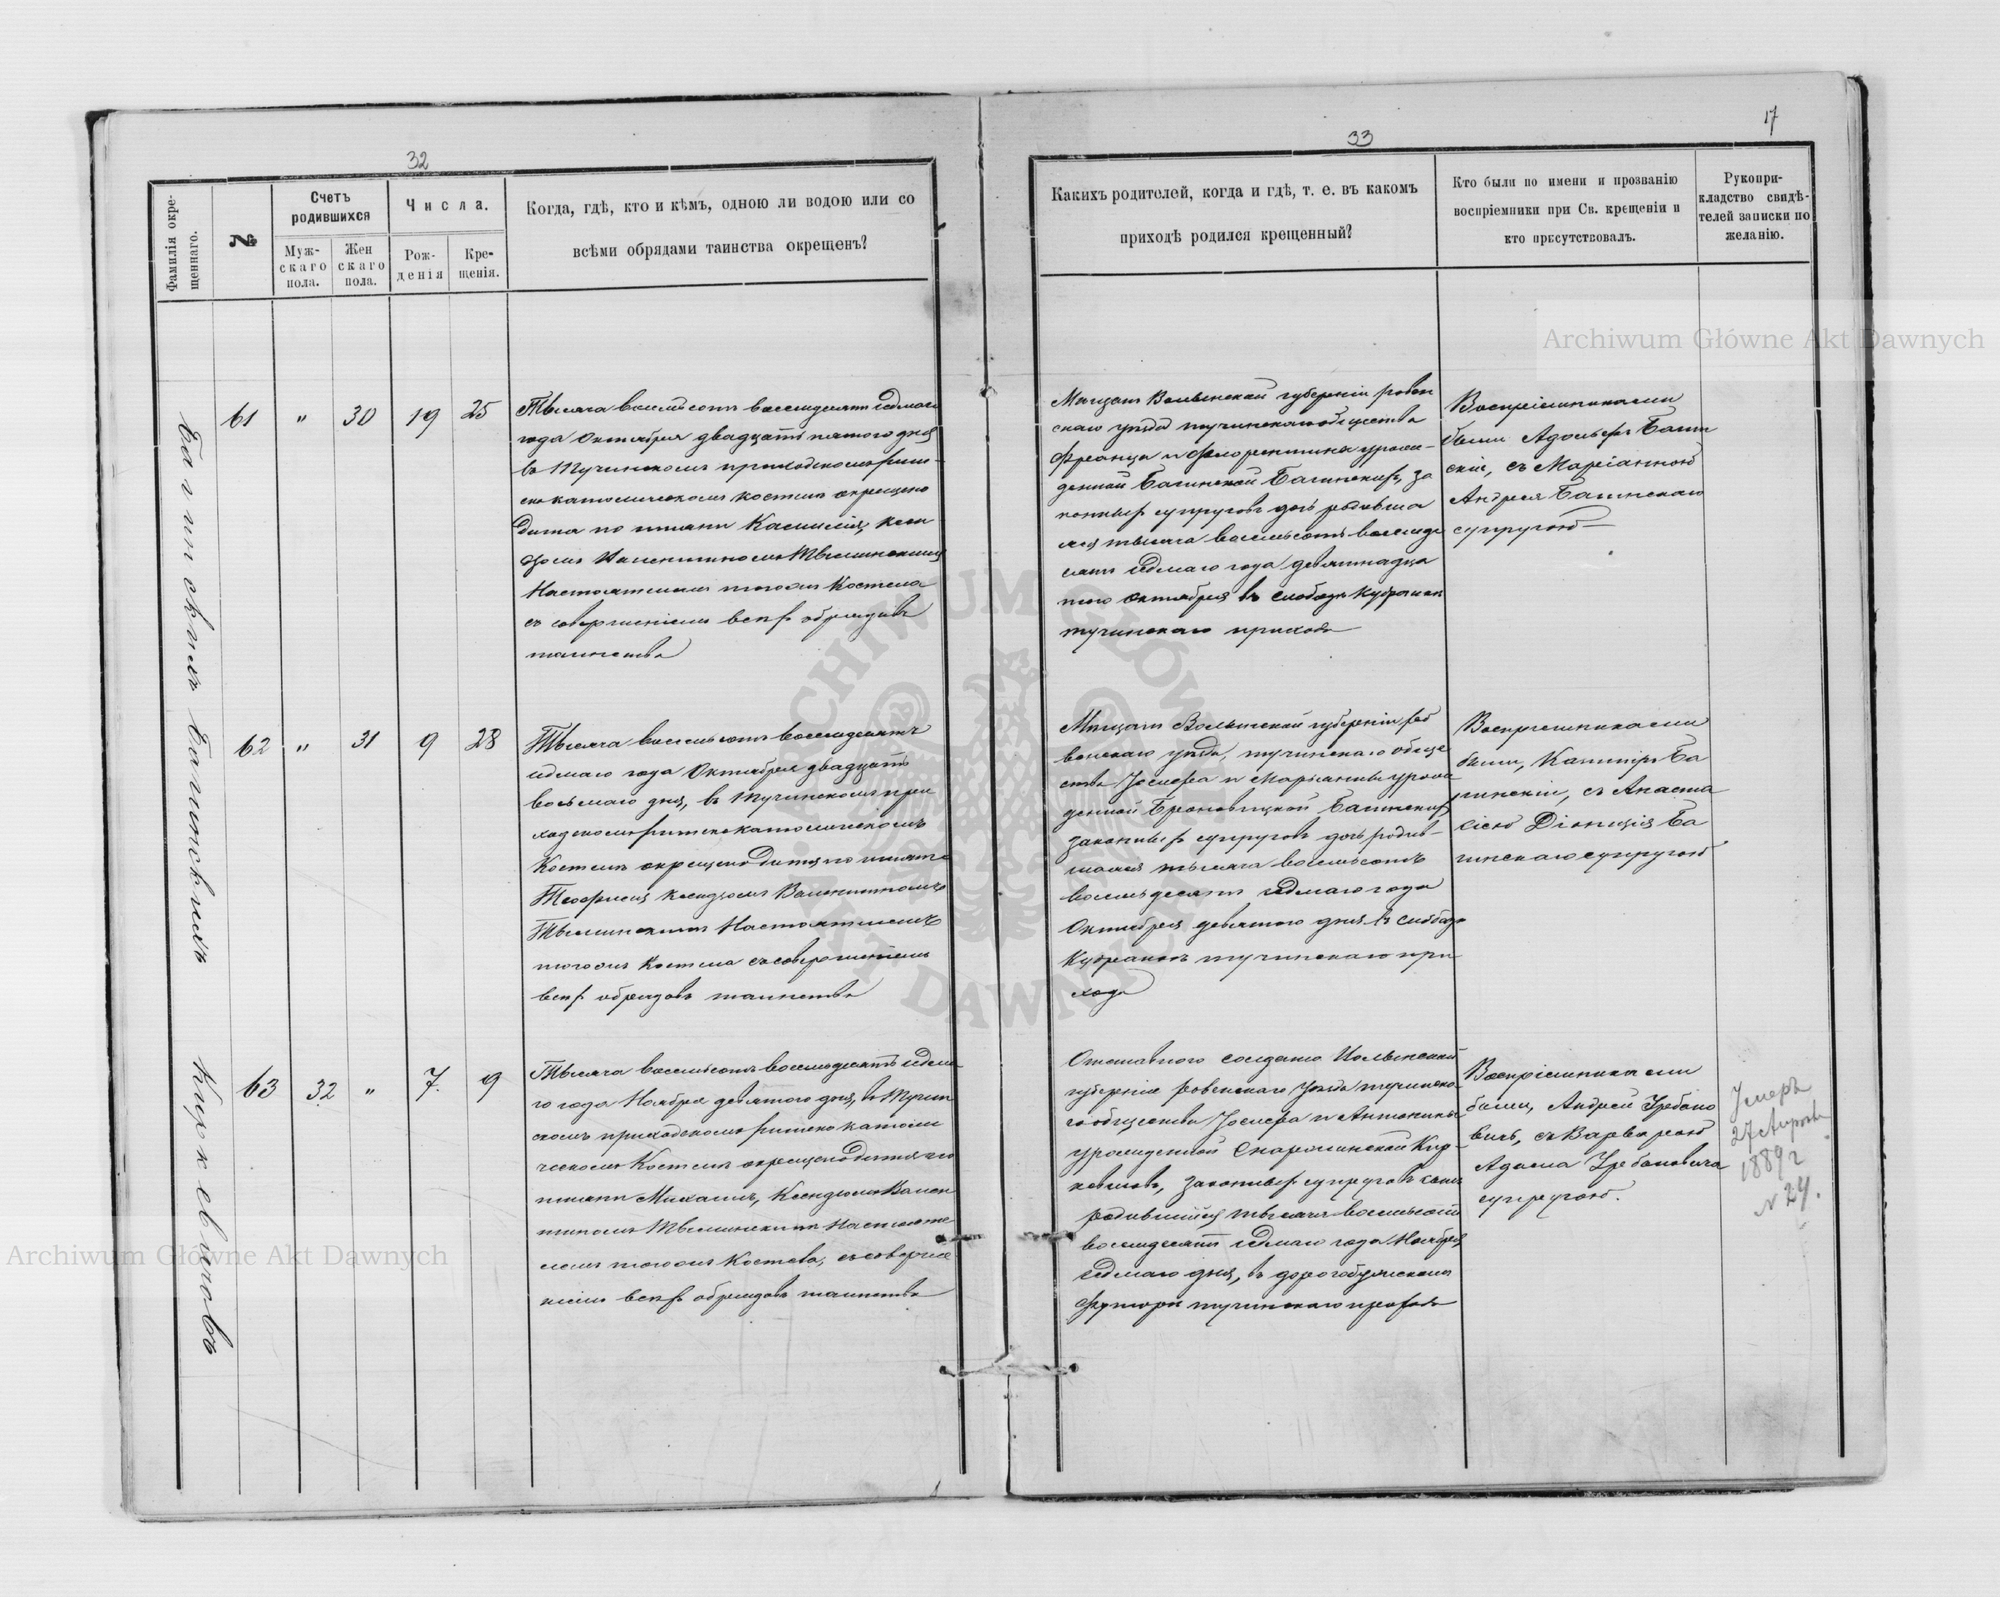 32
Фамилія окре-
щеннаго.
№
Счетъ
родившихся
Муж-
скаго
пола.
Жен
скаго
пола.
Числа.
Рож-
денія
Кре-
щенія.
Когда, гдѣ, кто и кѣмъ, одною ли водою или со
всѣми обрядами таинства окрещенъ?
61 " 30 19 25
Тысяча восемьсотъ восемьдесятъ седмаго
года Октября двадцать пятого дня
въ Тучинскомъ приходскомъ рим-
ско католическомъ костелѣ окрещено
дитя по имени Камилія, ксен
дзомъ Валентиномъ
Настоятелемъ тогожъ Костела
съ совершеніемъ всѣхъ обрядовъ
таинства
62 " 31 9 28
Тысяча восемьсотъ восемьдесятъ
седмаго года Октября двадцать
восьмаго дня, въ Тучинскомъ при
ходскомъ римскокатолическомъ
Костелѣ окрещено дитя по имени
Теофилія ксендзомъ Валентиномъ
Настоятелемъ
тогожъ Костела съ совершеніемъ
всѣхъ обрядовъ таинства
63 32 " 7. 9
Тысяча восемьсотъ восемьдесятъ седма
го года Ноября девятого дня, въ Тучин
скомъ приходскомъ римско католи
ческомъ Костелѣ окрещено дитя по
имени Михаилъ, Ксендзомъ Вален
тиномъ Настояте
лемъ тогожъ Костела, съ соверше
ніемъ всѣхъ обрядовъ таинства
33
17
Какихъ родителей, когда и гдѣ, т. е. въ какомъ
приходѣ родился крещенный?
Кто были по имени и прозванію
воспріемники при Св. крещеніи и
кто присутствовалъ.
Рукопри-
кладство свидѣ-
телей записки по
желанію.
Мѣщанъ Волынской губерніи ровен
скаго уѣзда тучинскаго общества
Франца и Флорентина урож-
денной Багинской Багинскихъ, за
конныхъ супруговъ дочь родивша
яся тысяча восемьсотъ восемьде
сятъ седмаго года девятнадца
того Октября въ слободѣ
тучинскаго прихода
Воспріемниками
были Адольфъ Багин
скій, съ Маріанною
Андрея Багинскаго
супругою
Мѣщанъ Волынской губерніи ро
венскаго уѣзда, тучинскаго обще
ства Іосифа и Маріанны урож
денной Багинскихъ
законныхъ супруговъ дочь родив-
шаяся тысяча восемьсотъ
восемьдесятъ седмаго года
Октября девятого дня въ слободѣ
тучинскаго при
хода
Воспріемниками
были, Казиміръ Ба
гинскій, съ Анаста
сіею Діонизія Ба
гинскаго супругою
Отставного солдата Волынской
губерніи ровенскаго уѣзда тучинска
го общества Іосифа и Антонины
урожденной
законныхъ супруговъ сынъ
родившійся тысяча восемьсотъ
восемьдесятъ седмаго года Ноября
седмаго дня, въ
футорѣ тучинскаго прихода
Воспріемниками
были, Андрей Урбано
вичъ, съ Варварою
Адама Урбановича
супругою.
Умеръ
27
1889 г
№ 24.
Archiwum Główne Akt Dawnych
Archiwum Główne Akt Dawnych